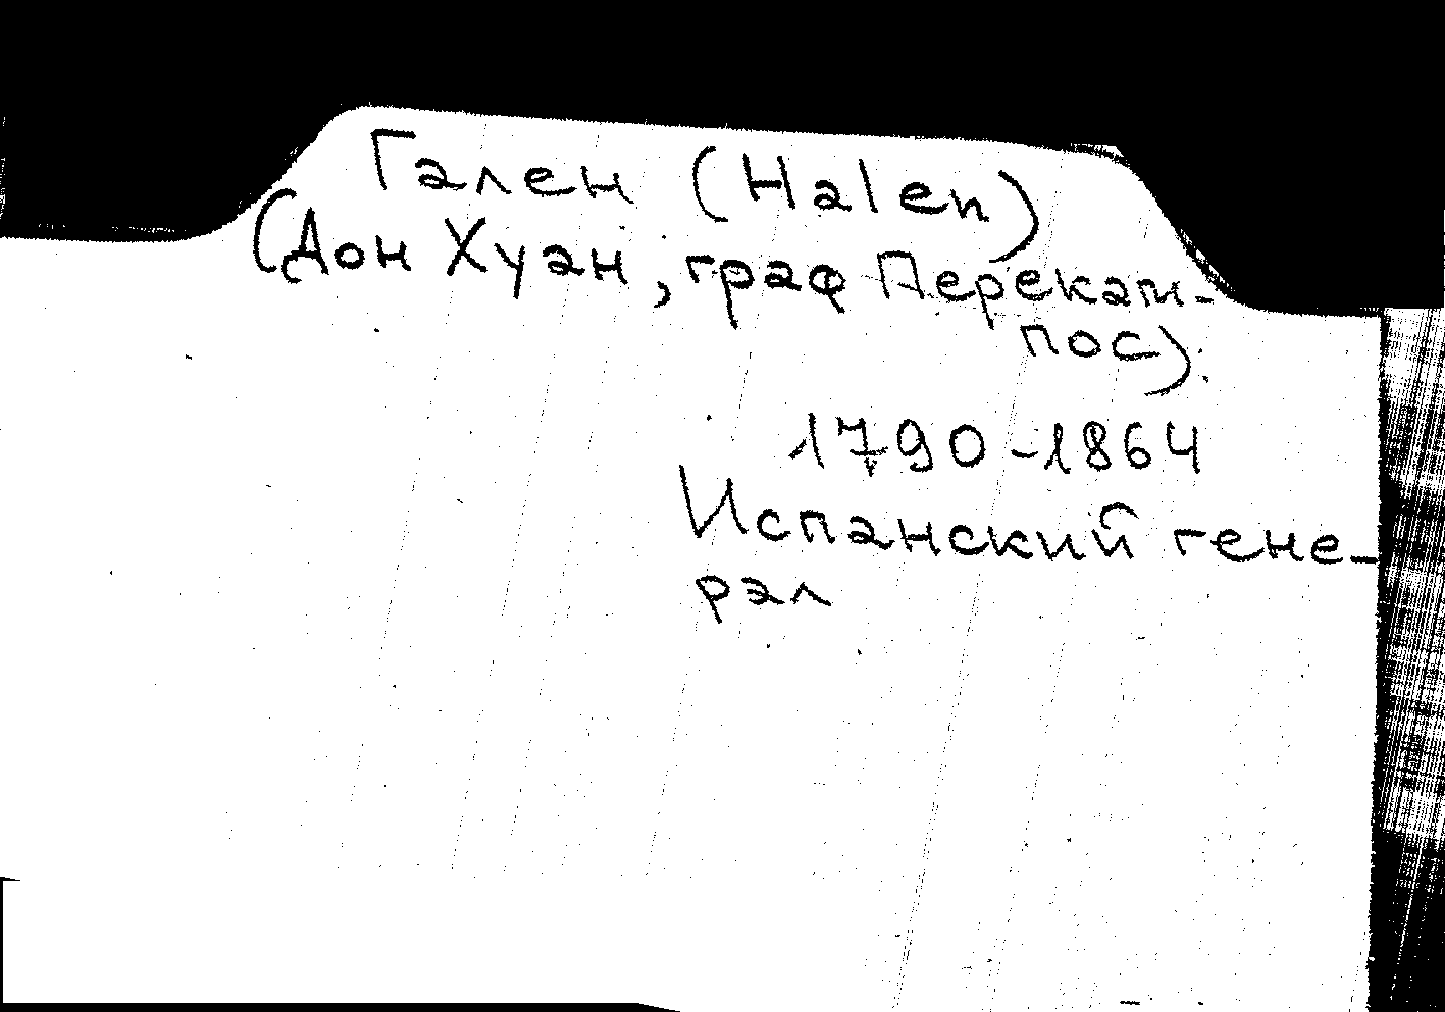 Гален (Halen)
(Дон Хуан, граф Перекам-
пос).
1790-1864
Испанский гене-
рал